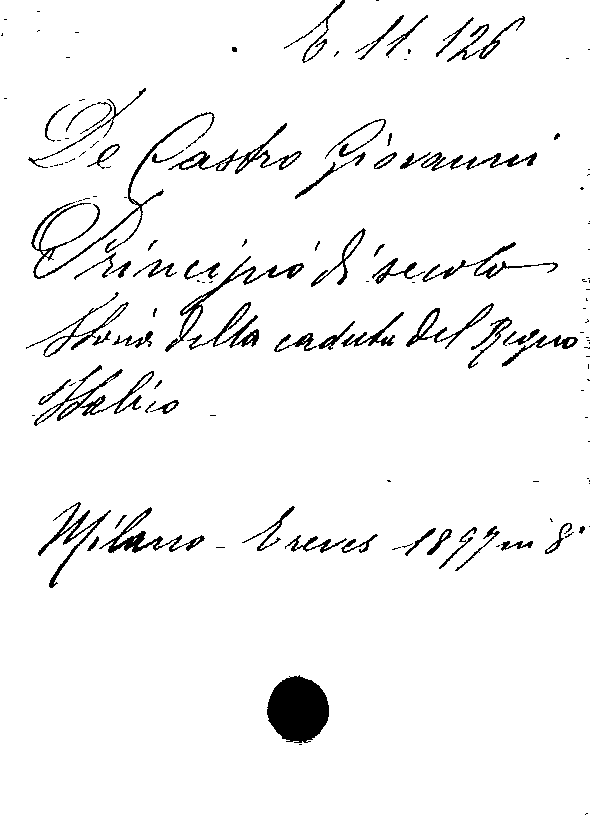 E. 11. 126
De Castro Giovanni
Principio di secolo
Storia della caduta del Regno
Italico
Milano - Treves 1897 in 8°